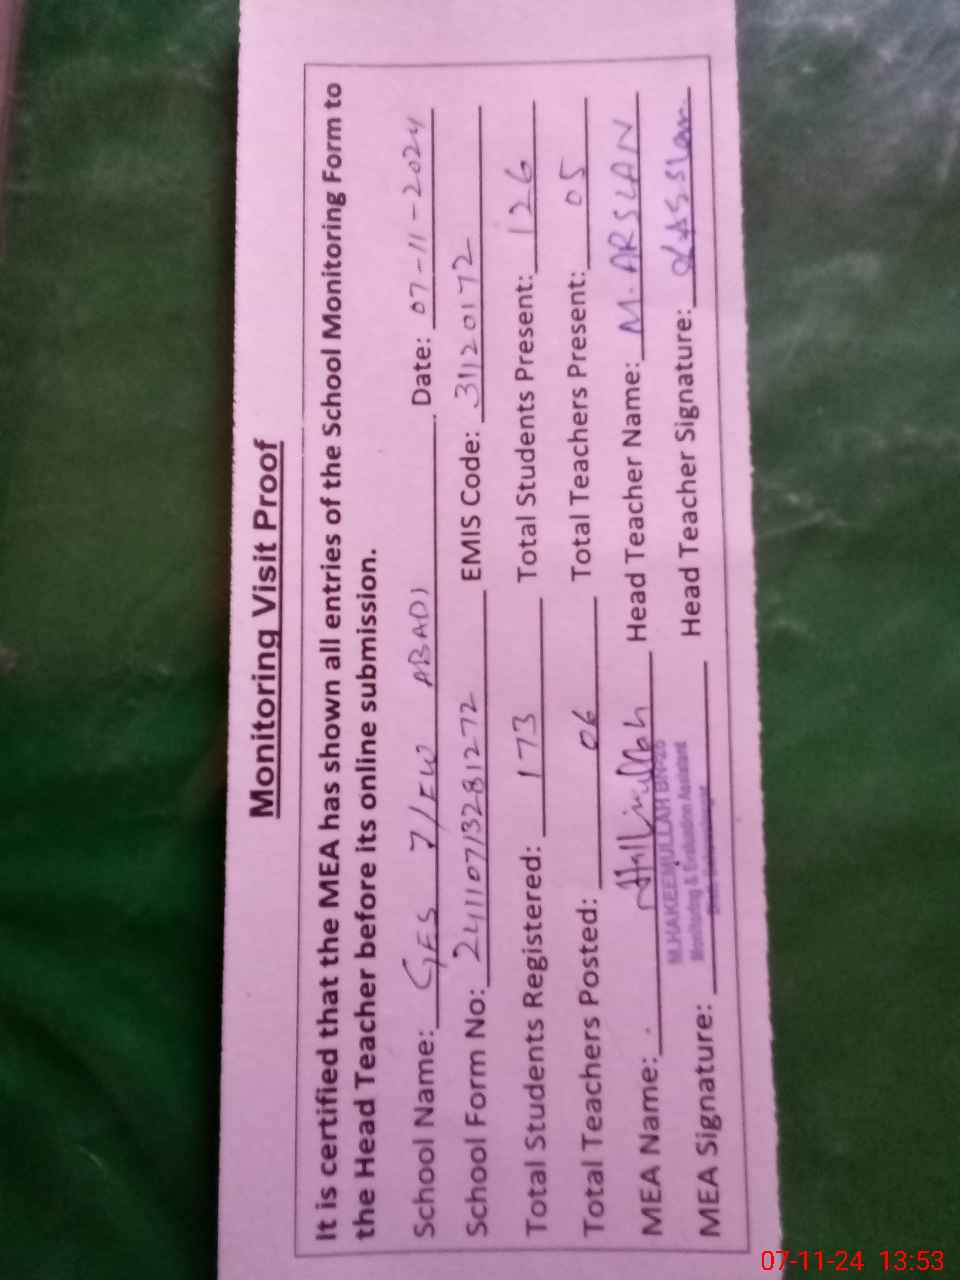 Monitoring Visit Proof
It is certified that the MEA has shown all entries of the School Monitoring Form to
the Head Teacher before its online submission.
School Name: GES 7/FW ABADI Date: 07-11-2024
School Form No: 24110713281272 EMIS Code: 31120172
Total Students Registered: 173 Total Students Present: 126
Total Teachers Posted: 06 Total Teachers Present: 05
MEA Name: Head Teacher Name: M. ARSLAN
M.HAKEEMULLAH BN-26
Monitoring & Evaluation Assistant
MEA Signature: Head Teacher Signature:
07-11-24 13:53